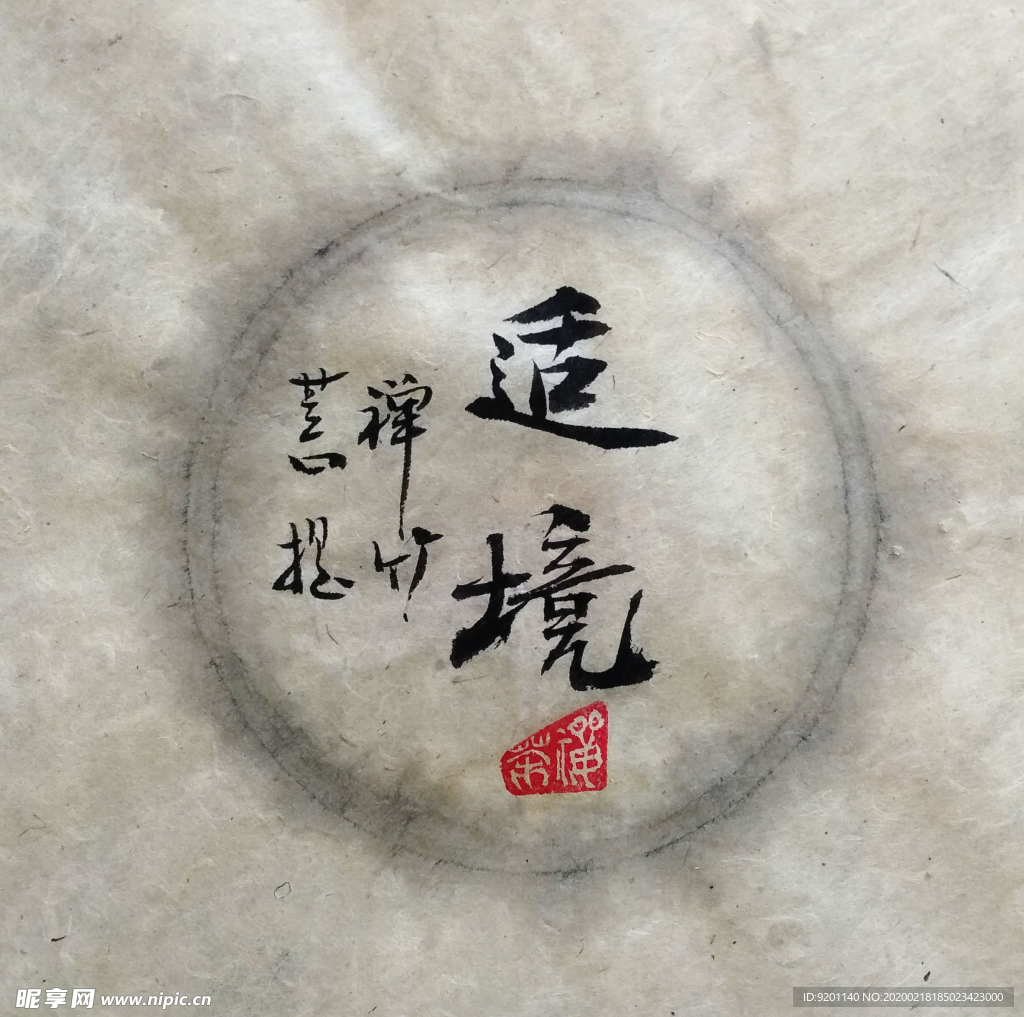 适境
禅竹
昵享网 www.nipic.cn
ID:9201140 NO:20200218185023423000